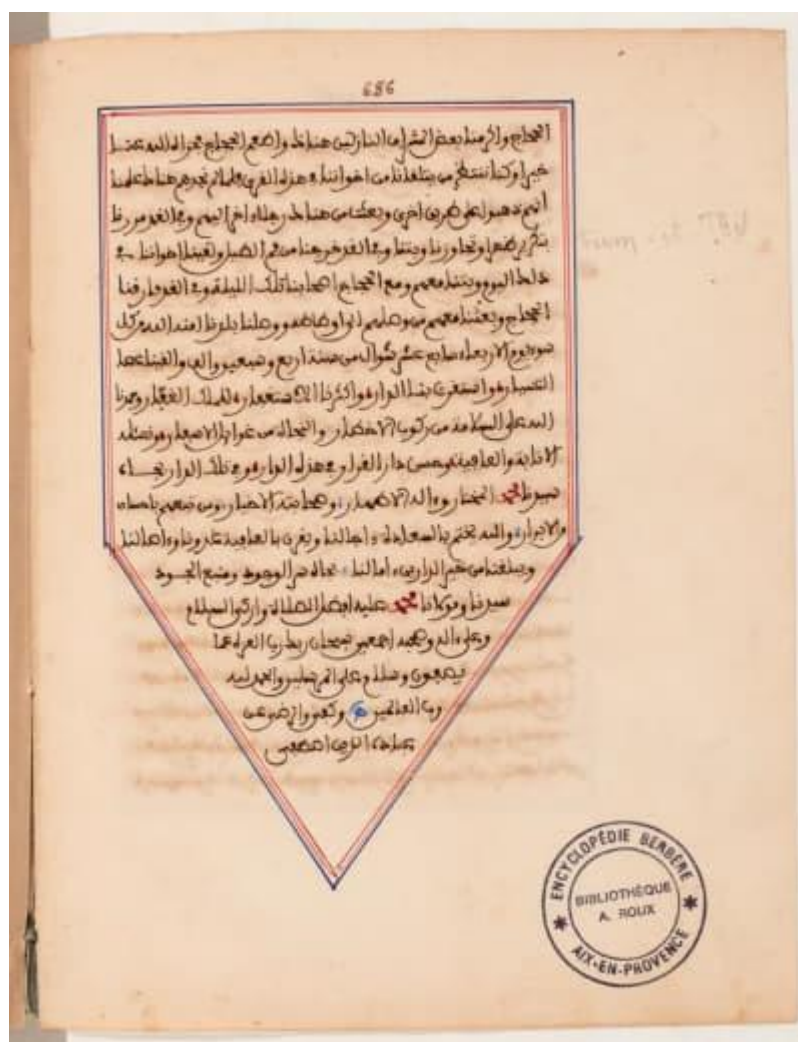 686
الحجاج واكرمنا بعض الشرفاء النازلين هناك واطعم الحجاج جزاه الله عنا
خيرا وكنا ننتظر من يتلقانا من اخواننا في هذه القرى فلما لم نجدهم هناك علمنا
انهم ذهبوا على طريق اخرى وبعثنا من هناك رجلا اخر اليوم وفي الغد مررنا
وبتنا وفي الغد خرجنا من فم ولقينا اخواننا في
ذلك اليوم وبتنا معهم ومع الحجاج اصحابنا تلك الليلة وفي الغد فارقنا
الحجاج وبعثنا معهم من ووصلنا بلدنا امنه الله من كل
سوء يوم الاربعاء سابع عشر شوال من سنة اربع وسبعين والف والقينا عصا
التسيار واستقرت بنا الدار واكثرنا الاستغفار للملك الغفار وحمدنا
الله على السلامة من ركوب الاخطار والنجاة من غوائل الاسفار ونسئله
الانابة والعافية وحسن دار القرار في هذه الدار وفي تلك الدار بجاه
سيدنا محمد المختار وءاله الاطهار وصحابته الاخيار ومن تبعهم باحسان
والابرار والله يختم بالسعادة ءاجالنا ويقرن بالعافية غدونا وءاصالنا
ويبلغنا من خير الدارين ءامالنا بجاه سر الوجود ومنبع الجود
سيدنا ومولانا محمد عليه افضل الصلاة وازكى السلام
وعلى ءاله وصحبه اجمعين سبحان ربك رب العزة عما
يصفون وسلام على المرسلين والحمد لله
رب العالمين
عباده الذين اصطفى
ENCYCLOPÉDIE BERBÈRE
BIBLIOTHÈQUE
A. ROUX
AIX-EN-PROVENCE